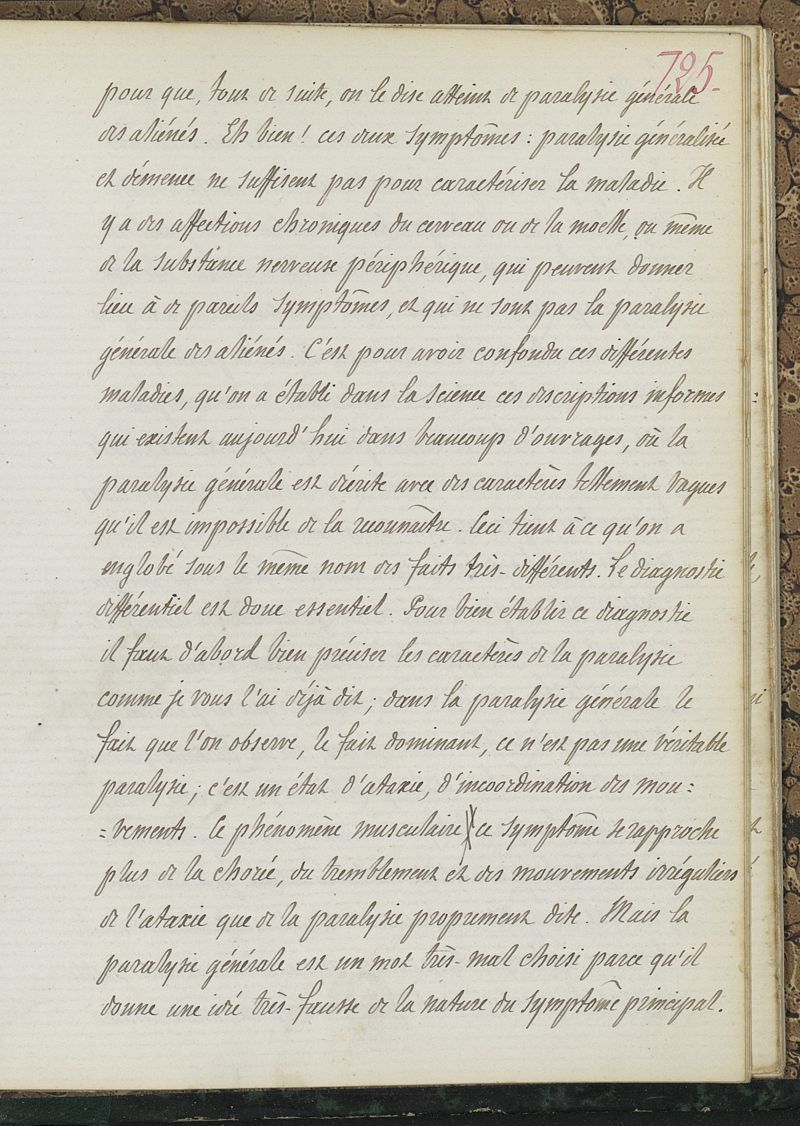 725.
pour que, tout de suite, on le dise atteint de paralysie générale
des aliénés. Eh bien! ces deux symptômes: paralysie généralisée
et démence ne suffisent pas pour caractériser la maladie. Il
y a des affections chroniques du cerveau ou de la moelle, ou même
de la substance nerveuse périphérique, qui peuvent donner
lieu à de pareils symptômes, et qui ne sont pas la paralysie
générale des aliénés. C'est pour avoir confondu ces différentes
maladies, qu'on a établi dans la science ces descriptions informes
qui existent aujourd'hui dans beaucoup d'ouvrages, où la
paralysie générale est décrite avec des caractères tellement vagues
qu'il est impossible de la reconnaître. Ceci tient à ce qu'on a
englobé sous le même nom des faits très-différents. Le diagnostic
différentiel est donc essentiel. Pour bien établir ce diagnostic
il faut d'abord bien préciser les caractères de la paralysie
comme je vous l'ai déjà dit; dans la paralysie générale le
fait que l'on observe, le fait dominant, ce n'est pas une véritable
paralysie; c'est un état d'ataxie, d'incoordination des mou=
=vements. Ce phénomène musculaire, ce symptôme se rapproche
plus de la chorée, du tremblement et des mouvements irréguliers
de l'ataxie que de la paralysie proprement dite. Mais la
paralysie générale est un mot très-mal choisi parce qu'il
donne une idée très-fausse de la nature du symptôme principal.